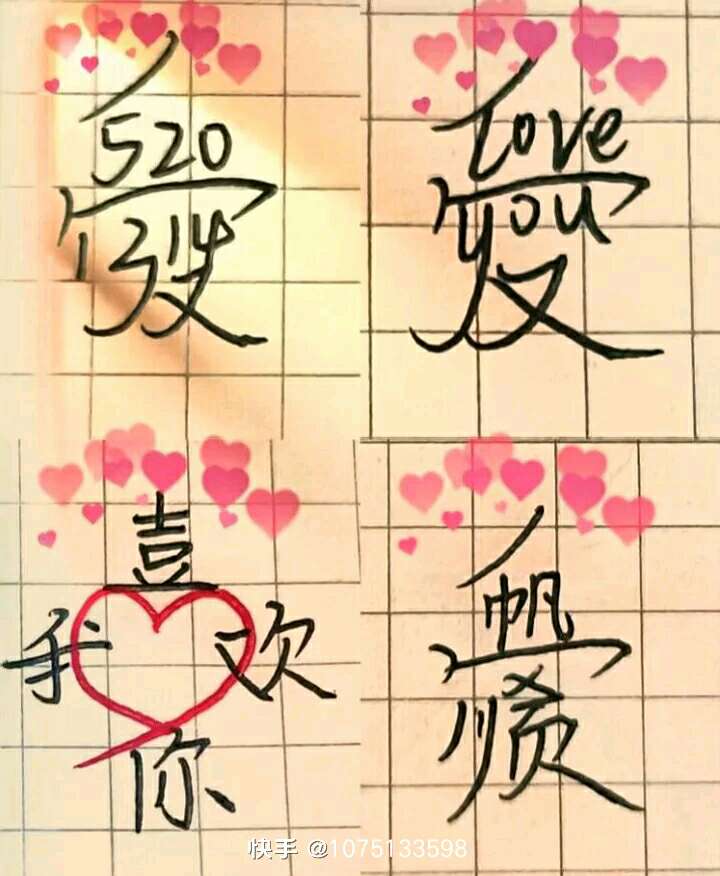 520
1314
Love
you
喜
我 欢
你
帆
顺
快手 @1075133598